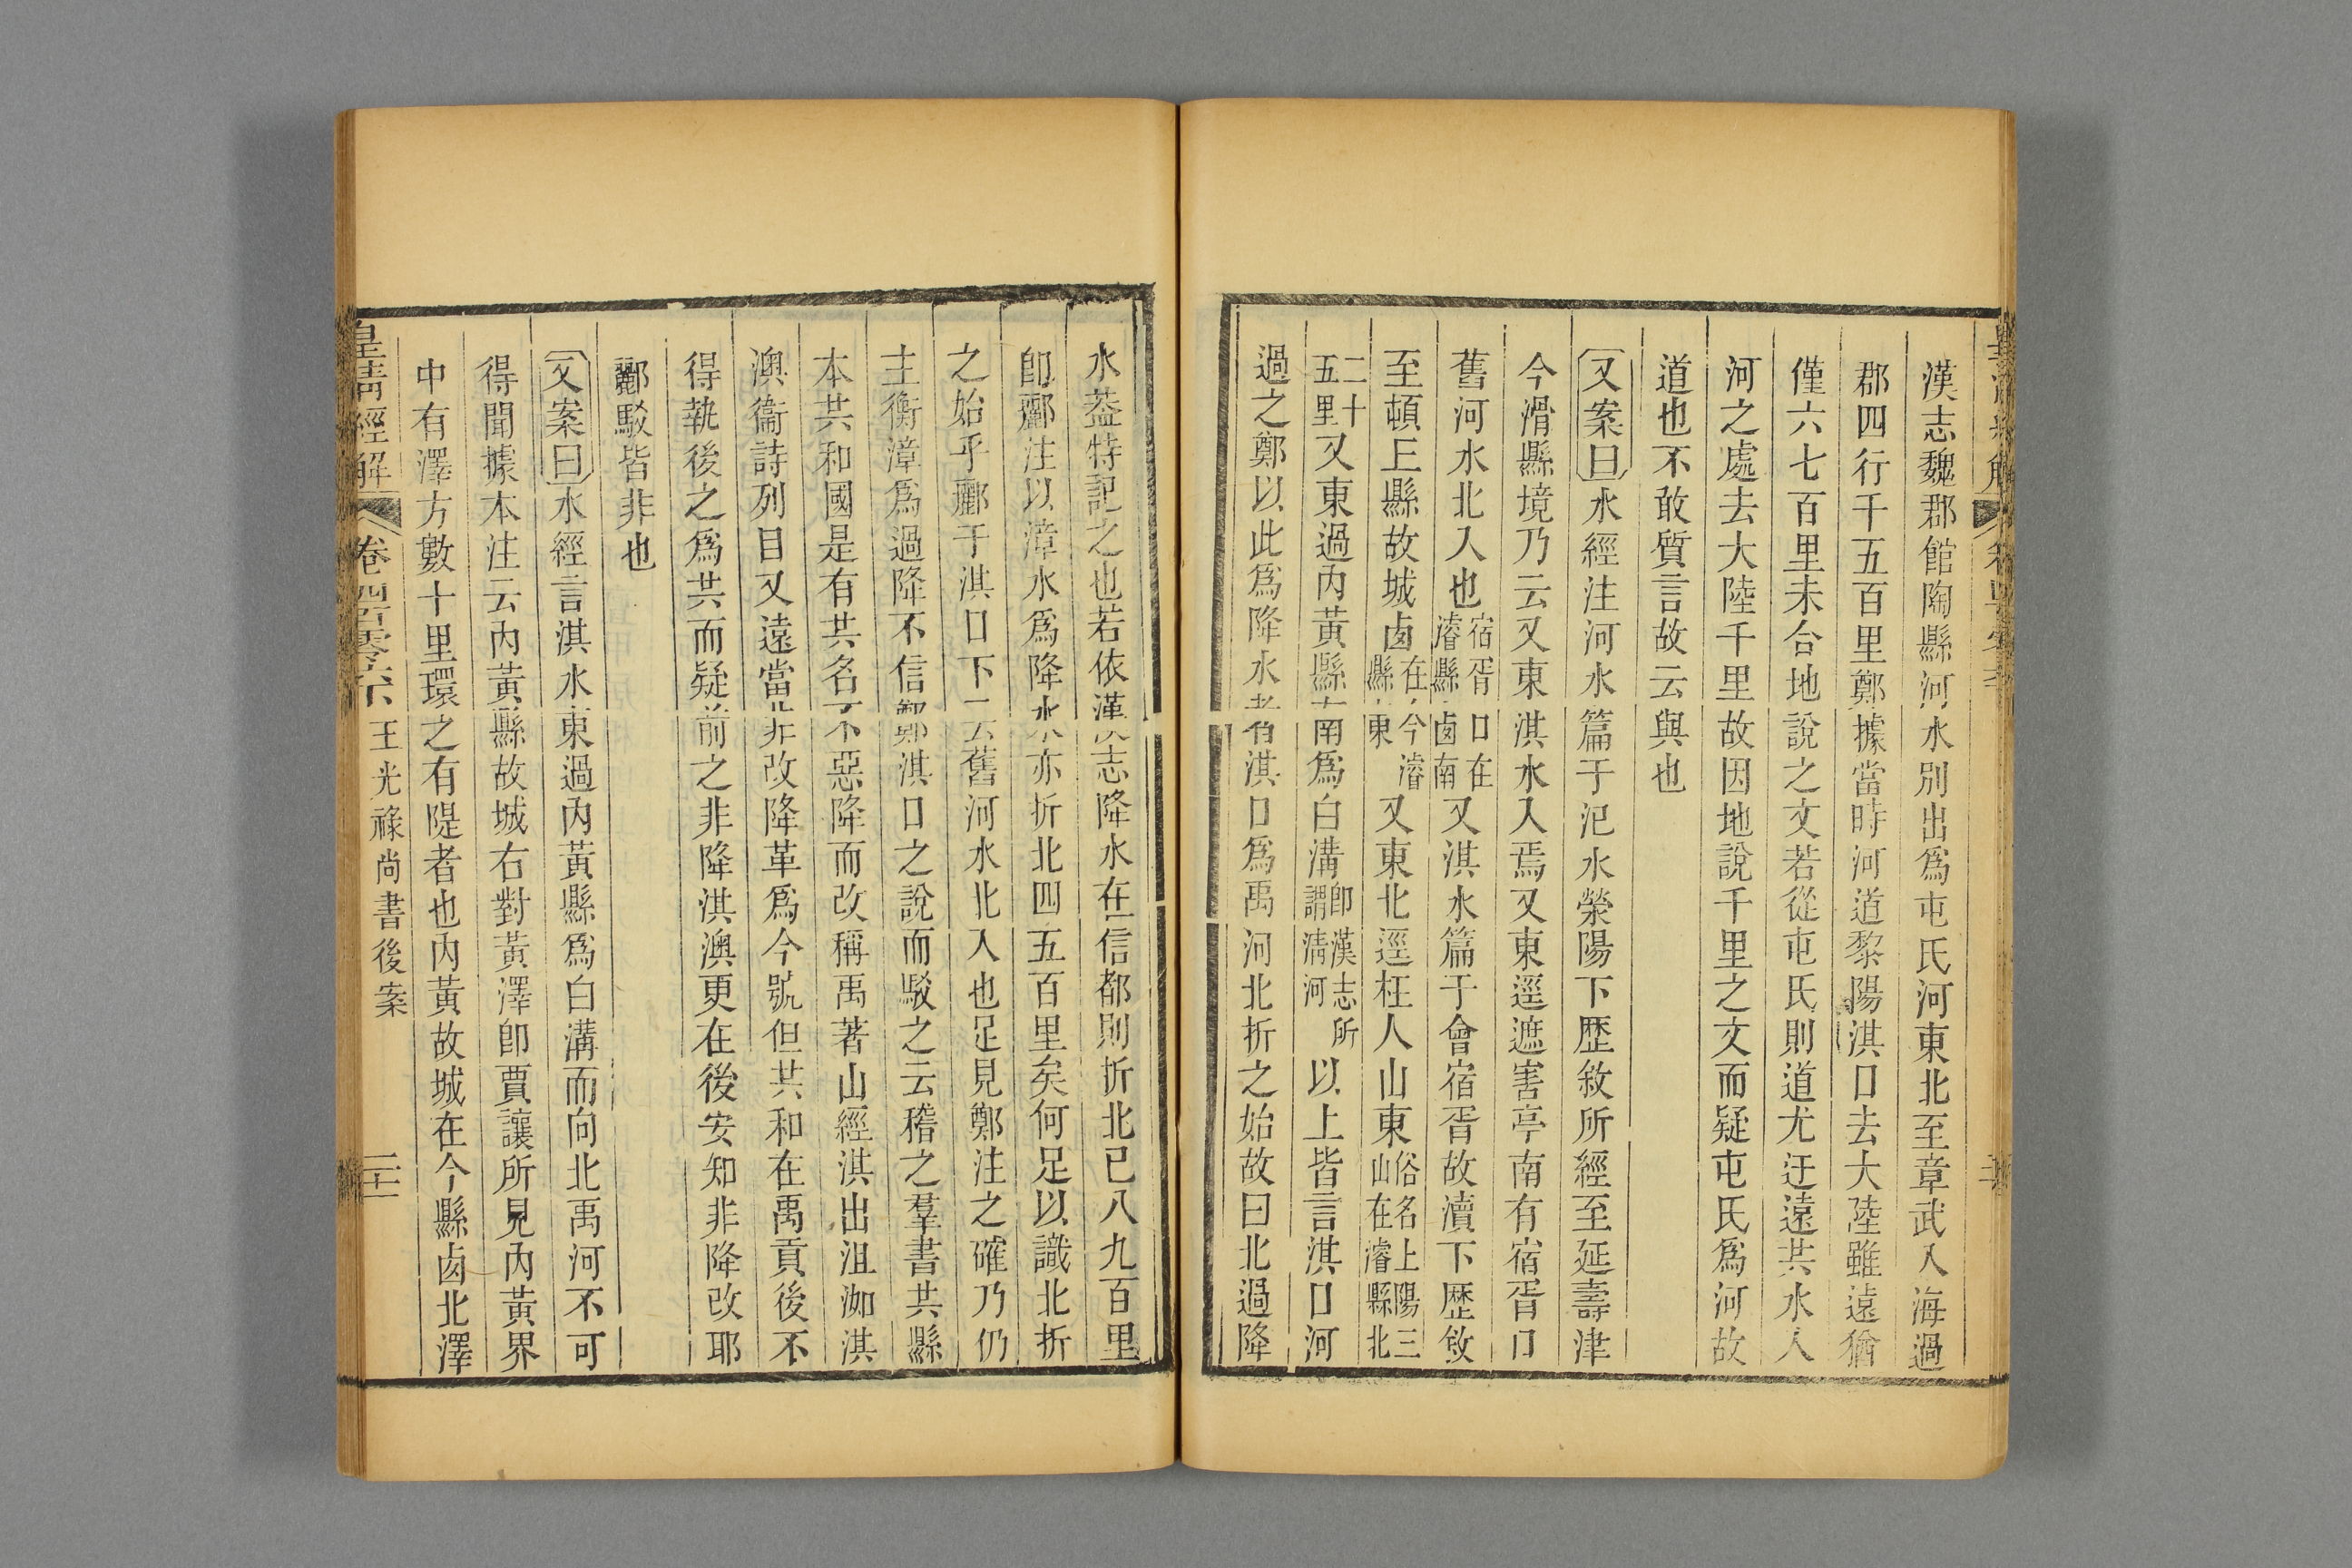 漢志魏郡館陶縣河水別出爲屯氏河東北至章武入海過
郡四行千五百里鄭據當時河道黎陽淇口去大陸雖遠猶
僅六七百里未合地說之文若從屯氏則道尤迂遠共水入
河之處去大陸千里故因地說千里之文而疑屯氏爲河故
道也不敢質言故云與也
又案曰水經注河水篇于汜水滎陽下歷敘所經至延壽津
今滑縣境乃云又東淇水入焉又東逕遮害亭南有宿胥口
舊河水北入也宿胥口在濬縣卤南又淇水篇于會宿胥故瀆下歷敘
至頓丘縣故城卤在今濬縣東又東北逕枉人山東俗名上陽三山在濬縣北
二十五里又東過內黃縣南爲白溝卽漢志所謂淸河以上皆言淇口河
過之鄭以此爲降水者淇口爲禹河北折之始故曰北過降
水葢特記之也若依漢志降水在信都則折北已八九百里
卽酈注以漳水爲降水亦折北四五百里矣何足以識北折
之始乎酈于淇口下云舊河水北入也足見鄭注之確乃仍
主衡漳爲過降不信鄭淇口之說而駮之云稽之羣書共縣
本共和國是有共名不惡降而改稱禹著山經淇出沮洳淇
澳衞詩列目又遠當非改降革爲今號但共和在禹貢後不
得執後之爲共而疑前之非降淇澳更在後安知非降改耶
酈駮皆非也
又案曰水經言淇水東過內黃縣爲白溝而向北禹河不可
得聞據本注云內黃縣故城右對黃澤卽賈讓所見內黃界
中有澤方數十里環之有隄者也內黃故城在今縣卤北澤
皇淸經解 卷四百零六下 王光祿尚書後案 二十二